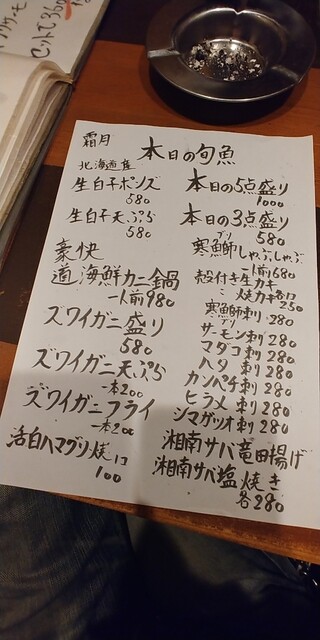 霜月
本日の旬魚
北海道産
生白子ポンズ
580
生白子天ぷら
580
豪快
道海鮮カニ鍋
一人前980
ズワイガニ盛り
580
ズワイガニ天ぷら
一本200
ズワイガニフライ
一本200
活白ハマグリ焼
100
本日の5点盛り
1000
本日の3点盛り
580
ブリ
寒鰤しゃぶしゃぶ
一人前680
殻付き生カキ
焼カキ各
250
寒鰤刺し280
ブリ
サーモン刺280
マダコ刺280
ハタ刺280
カンパチ刺280
ヒラメ刺280
シマガツオ刺280
湘南サバ竜田揚げ
湘南サバ塩焼き
各280